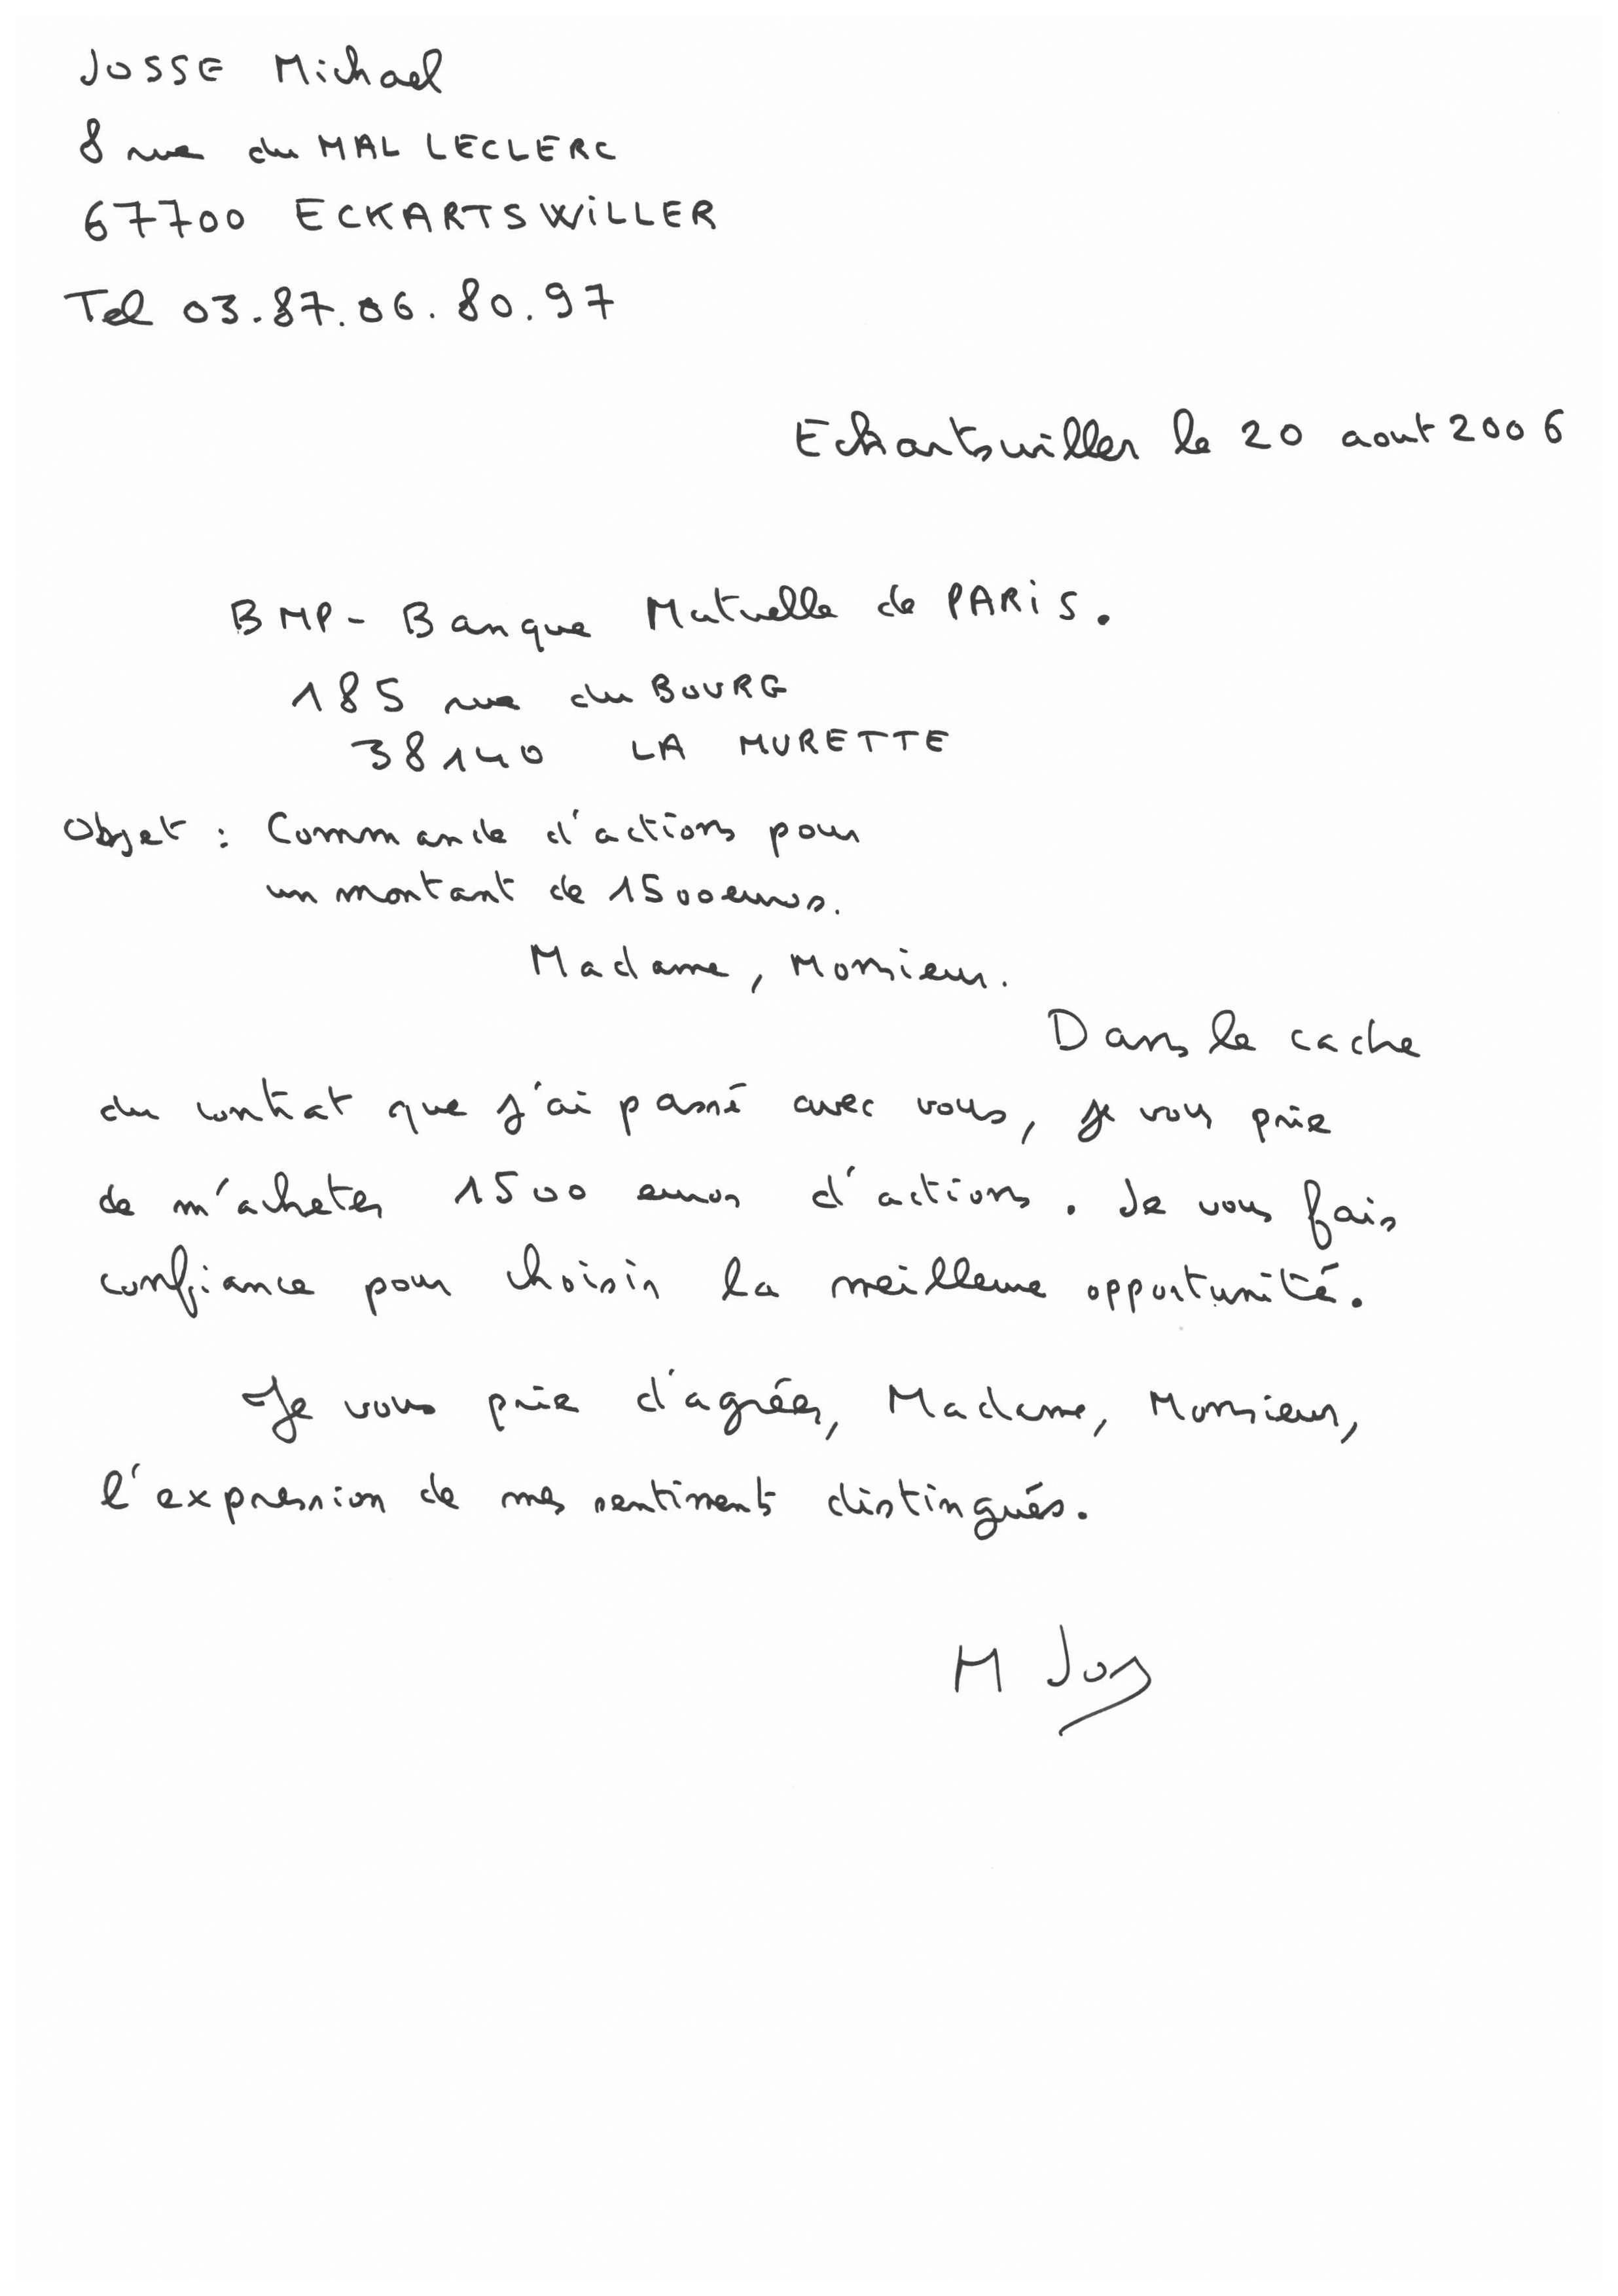 JOSSE Michael
8 rue du MAL LECLERC
67700 ECKARTSWILLER
Tel 03.87.06.80.97
Eckartswiller le 20 aout 2006
BMP - Banque Mutuelle de PARIS.
185 rue du BOURG
38140 LA MURETTE
Objet : Commande d'actions pour
un montant de 1500 euros.
Madame, Monsieur.
Dans le cache
du contrat que j'ai passé avec vous, je vous prie
de m'acheter 1500 euros d'actions. Je vous fais
confiance pour choisir la meilleure opportunité.
Je vous prie d'agréer, Madame, Monsieur,
l'expression de mes sentiments distingués.
M Joss